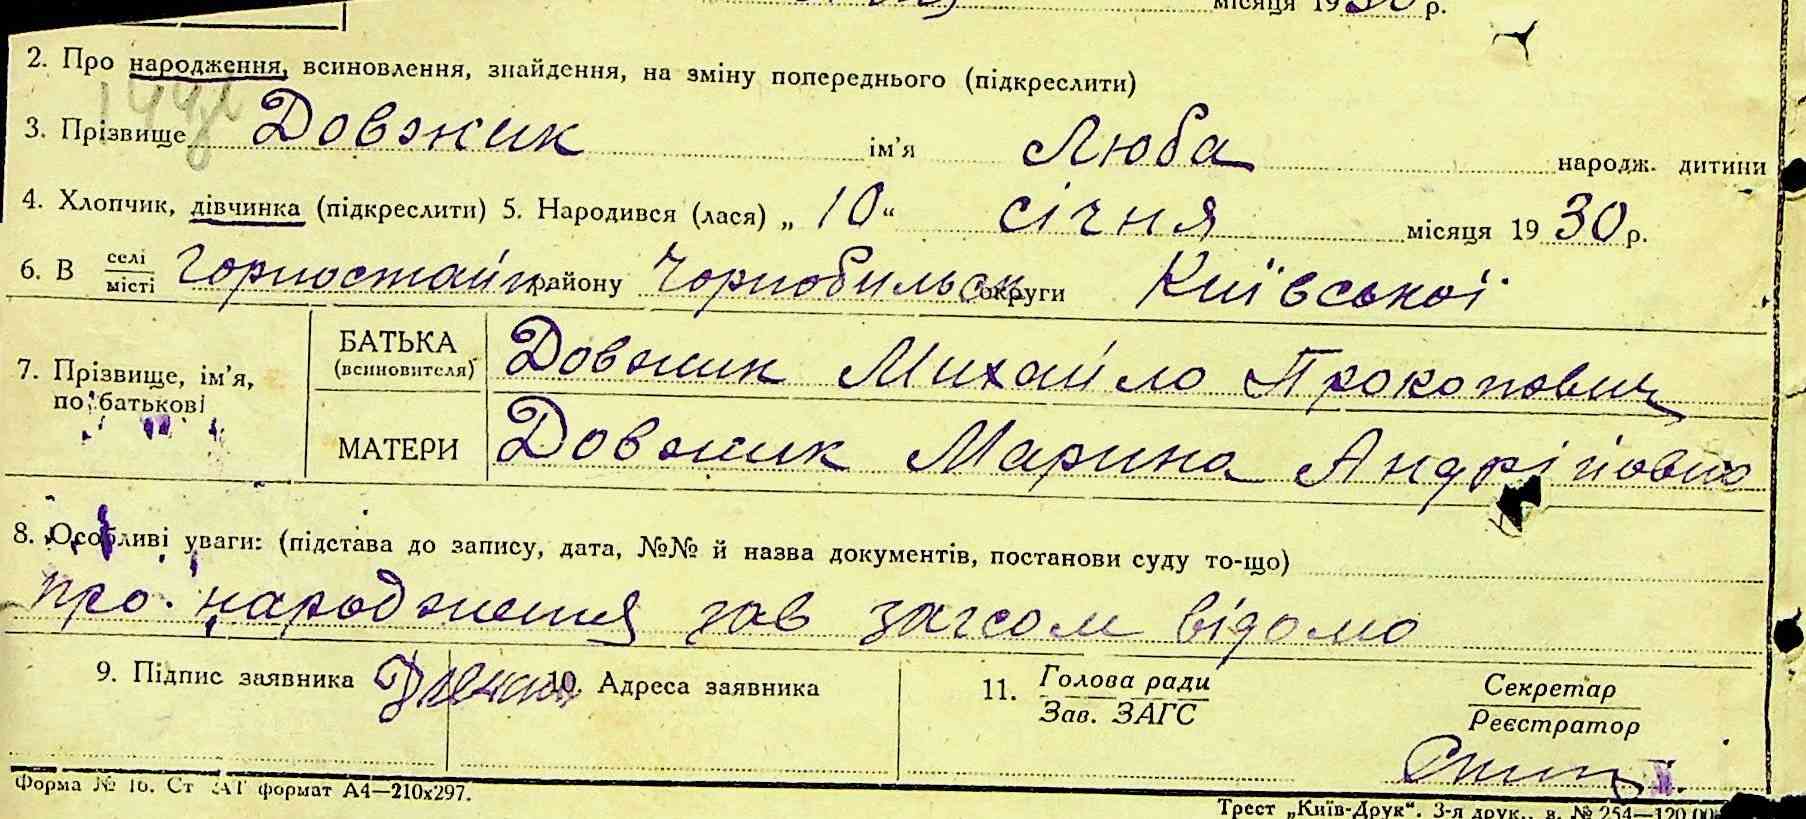 місяця 1930 р.
2. Про народження, всиновлення, знайдення, на зміну попереднього (підкреслити)
3. Прізвище Довжик ім'я Люба народж. дитини
4. Хлопчик, дівчинка (підкреслити) 5. Народився (лася) „ 10 “ січня місяця 1930 р.
6. В селі/місті Горностайп. району Чорнобильськ округи Київської
7. Прізвище, ім'я, по батькові
БАТЬКА (всиновителя) Довжик Михайло Прокопович
МАТЕРИ Довжик Марина Андріївна
8. Особливі уваги: (підстава до запису, дата, №№ й назва документів, постанови суду то-що)
про народження зав загсом відомо
9. Підпис заявника 10. Адреса заявника 11. Голова ради Секретар
Зав. ЗАГС Реєстратор
Форма № 16. Ст формат А4—210x297.
Трест „Київ-Друк“. 3-я друк., з. № 254—120.00